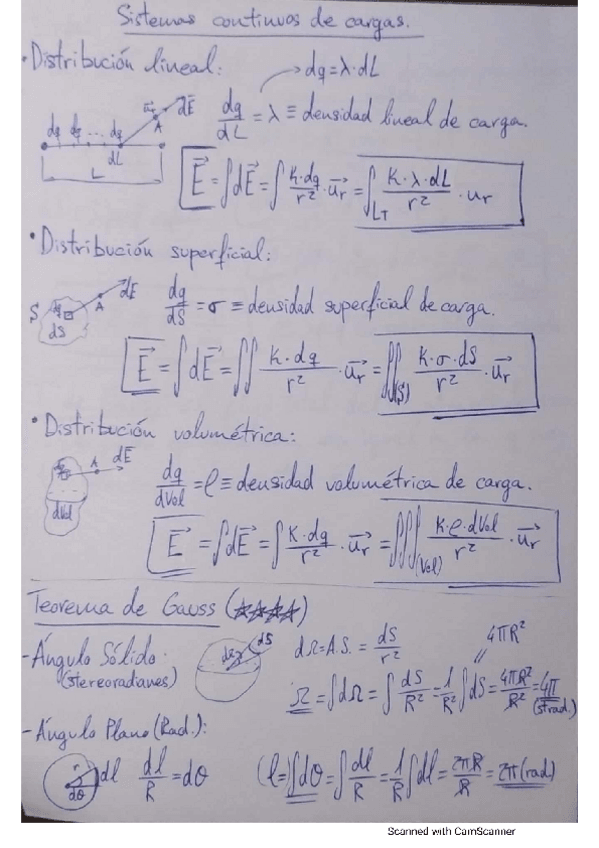 Sistemas continuos de cargas.
· Distribución lineal: → dq = λ·dL
dq dq ... dq dL L A u_r dE⃗ dq/dL = λ ≡ densidad lineal de carga.
E⃗ = ∫dE⃗ = ∫ K·dq/r² · u⃗_r = ∫_LT K·λ·dL/r² · u_r
· Distribución superficial:
S dq dS A dE⃗ dq/dS = σ ≡ densidad superficial de carga.
E⃗ = ∫dE⃗ = ∬ K·dq/r² · u⃗_r = ∬_(S) K·σ·dS/r² · u⃗_r
· Distribución volumétrica:
dq A dE⃗ dVol dq/dVol = ρ ≡ densidad volumétrica de carga.
E⃗ = ∫dE⃗ = ∫ K·dq/r² · u⃗_r = ∭_(Vol) K·ρ·dVol/r² · u⃗_r
Teorema de Gauss (☆☆☆☆)
- Ángulo Sólido. dΩ dS dΩ = A.S. = dS/r² 4πR²
(stereoradianes) Ω = ∫dΩ = ∫ dS/R² = 1/R² ∫dS = 4πR²/R² = 4π (strad.)
- Ángulo Plano (Rad.):
r dθ dl dl/R = dθ (l=) ∫dθ = ∫ dl/R = 1/R ∫dl = 2πR/R = 2π (rad)
Scanned with CamScanner